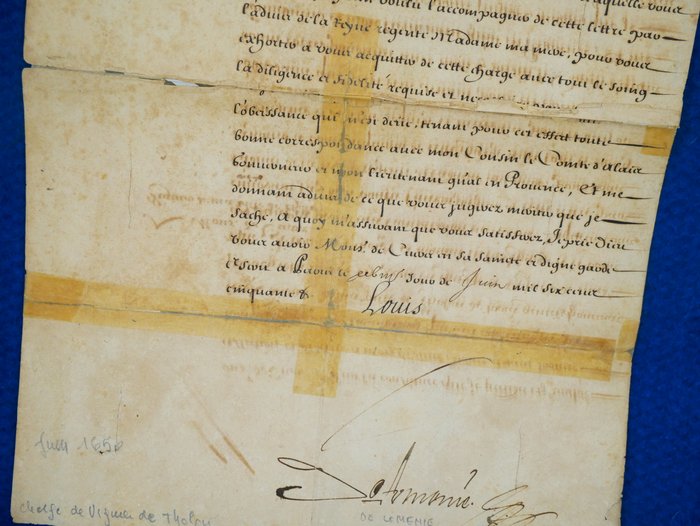 l'aduis de la Reyne regente Madame ma mere, pour vous
exhorter a vous acquitter de cette charge auec tout le soing
la diligence et fidelité requise et
l'obeissance qui m'en deüe, tenant pour cet effect toute
bonne correspondance auec mon Cousin le Comte d'alaix
gouuerneur et mon lieutenant gnal en Prouence, Et me
donnant aduis de ce que vous jugerez meriter que je
sache, A quoy m'assurant que vous satisferez, Je prie Dieu
vous auoir Monsr. de en sa saincte et digne garde
Escrit a Paris le Jour de Juin mil six cens
cinquante &
Louis
Juin 1650
De Lomenie
charge de Viguier de Tholon
DE LOMENIE